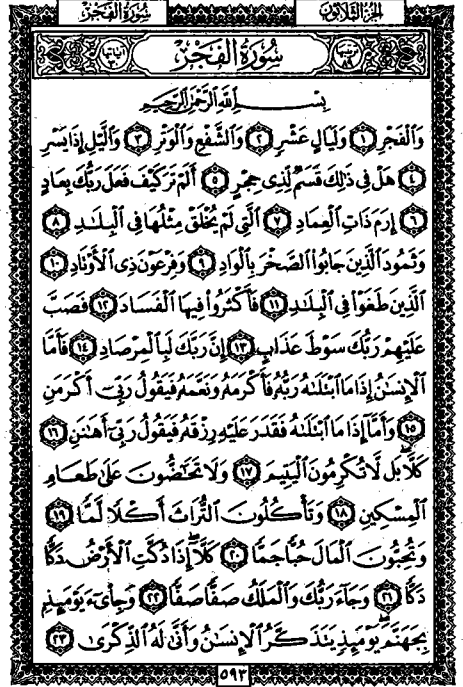 سُورَةُ الفَجْرِ
الجُزْءُ الثَّلَاثُونَ
سُورَةُ الفَجْرِ
بِسْمِ اللَّهِ الرَّحْمَٰنِ الرَّحِيمِ
وَالْفَجْرِ ﴿١﴾ وَلَيَالٍ عَشْرٍ ﴿٢﴾ وَالشَّفْعِ وَالْوَتْرِ ﴿٣﴾ وَاللَّيْلِ إِذَا يَسْرِ
﴿٤﴾ هَلْ فِي ذَٰلِكَ قَسَمٌ لِّذِي حِجْرٍ ﴿٥﴾ أَلَمْ تَرَ كَيْفَ فَعَلَ رَبُّكَ بِعَادٍ
﴿٦﴾ إِرَمَ ذَاتِ الْعِمَادِ ﴿٧﴾ الَّتِي لَمْ يُخْلَقْ مِثْلُهَا فِي الْبِلَٰدِ ﴿٨﴾
وَثَمُودَ الَّذِينَ جَابُوا الصَّخْرَ بِالْوَادِ ﴿٩﴾ وَفِرْعَوْنَ ذِي الْأَوْتَادِ ﴿١٠﴾
الَّذِينَ طَغَوْا فِي الْبِلَٰدِ ﴿١١﴾ فَأَكْثَرُوا فِيهَا الْفَسَادَ ﴿١٢﴾ فَصَبَّ
عَلَيْهِمْ رَبُّكَ سَوْطَ عَذَابٍ ﴿١٣﴾ إِنَّ رَبَّكَ لَبِالْمِرْصَادِ ﴿١٤﴾ فَأَمَّا
الْإِنسَٰنُ إِذَا مَا ابْتَلَىٰهُ رَبُّهُ فَأَكْرَمَهُ وَنَعَّمَهُ فَيَقُولُ رَبِّي أَكْرَمَنِ
﴿١٥﴾ وَأَمَّا إِذَا مَا ابْتَلَىٰهُ فَقَدَرَ عَلَيْهِ رِزْقَهُ فَيَقُولُ رَبِّي أَهَٰنَنِ ﴿١٦﴾
كَلَّا ۖ بَل لَّا تُكْرِمُونَ الْيَتِيمَ ﴿١٧﴾ وَلَا تَحَٰضُّونَ عَلَىٰ طَعَامِ
الْمِسْكِينِ ﴿١٨﴾ وَتَأْكُلُونَ التُّرَاثَ أَكْلًا لَّمًّا ﴿١٩﴾
وَتُحِبُّونَ الْمَالَ حُبًّا جَمًّا ﴿٢٠﴾ كَلَّا ۖ إِذَا دُكَّتِ الْأَرْضُ دَكًّا
دَكًّا ﴿٢١﴾ وَجَاءَ رَبُّكَ وَالْمَلَكُ صَفًّا صَفًّا ﴿٢٢﴾ وَجِايءَ يَوْمَئِذٍ
بِجَهَنَّمَ ۚ يَوْمَئِذٍ يَتَذَكَّرُ الْإِنسَٰنُ وَأَنَّىٰ لَهُ الذِّكْرَىٰ ﴿٢٣﴾
٥٩٣